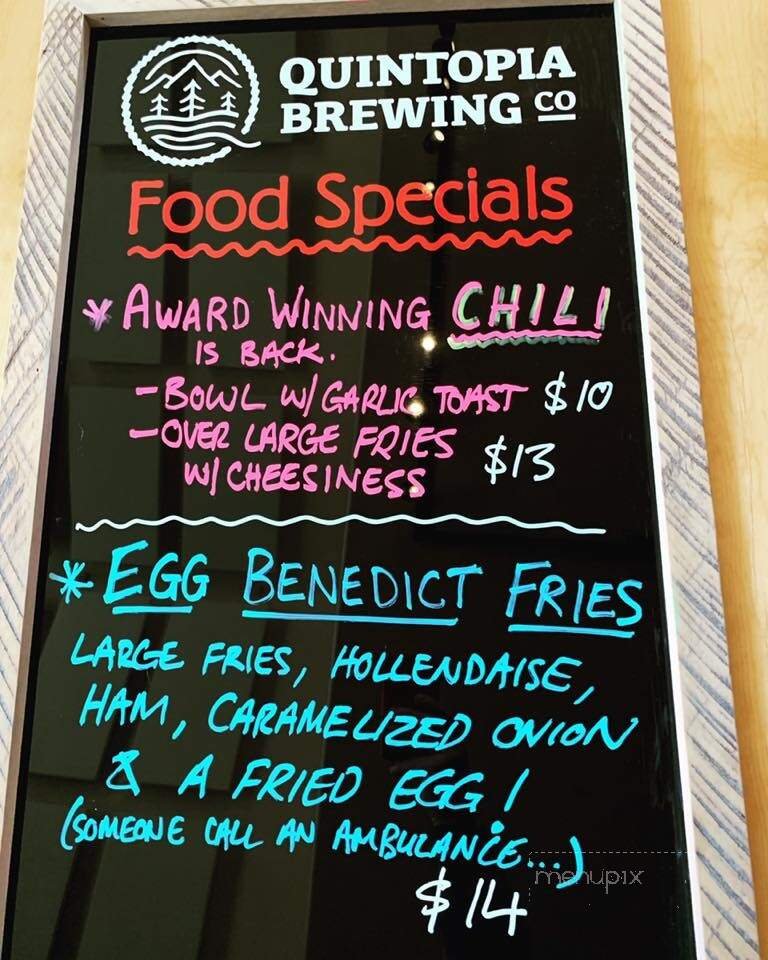 QUINTOPIA
BREWING CO
Food Specials
* AWARD WINNING CHILI
IS BACK.
- BOWL W/ GARLIC TOAST $10
- OVER LARGE FRIES
W/ CHEESINESS $13
* EGG BENEDICT FRIES
LARGE FRIES, HOLLENDAISE,
HAM, CARAMELIZED ONION
& A FRIED EGG!
(SOMEONE CALL AN AMBULANCE...)
menupix
$14